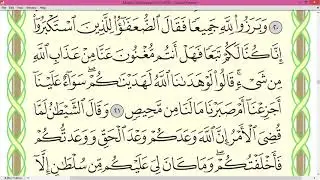 وَبَرَزُوا۟ لِلَّهِ جَمِيعًا فَقَالَ ٱلضُّعَفَٰٓؤُا۟ لِلَّذِينَ ٱسْتَكْبَرُوٓا۟
إِنَّا كُنَّا لَكُمْ تَبَعًا فَهَلْ أَنتُم مُّغْنُونَ عَنَّا مِنْ عَذَابِ ٱللَّهِ
مِن شَىْءٍ ۚ قَالُوا۟ لَوْ هَدَىٰنَا ٱللَّهُ لَهَدَيْنَٰكُمْ ۖ سَوَآءٌ عَلَيْنَآ
أَجَزِعْنَآ أَمْ صَبَرْنَا مَا لَنَا مِن مَّحِيصٍ ٢١ وَقَالَ ٱلشَّيْطَٰنُ لَمَّا
قُضِىَ ٱلْأَمْرُ إِنَّ ٱللَّهَ وَعَدَكُمْ وَعْدَ ٱلْحَقِّ وَوَعَدتُّكُمْ
فَأَخْلَفْتُكُمْ ۖ وَمَا كَانَ لِىَ عَلَيْكُم مِّن سُلْطَٰنٍ إِلَّآ